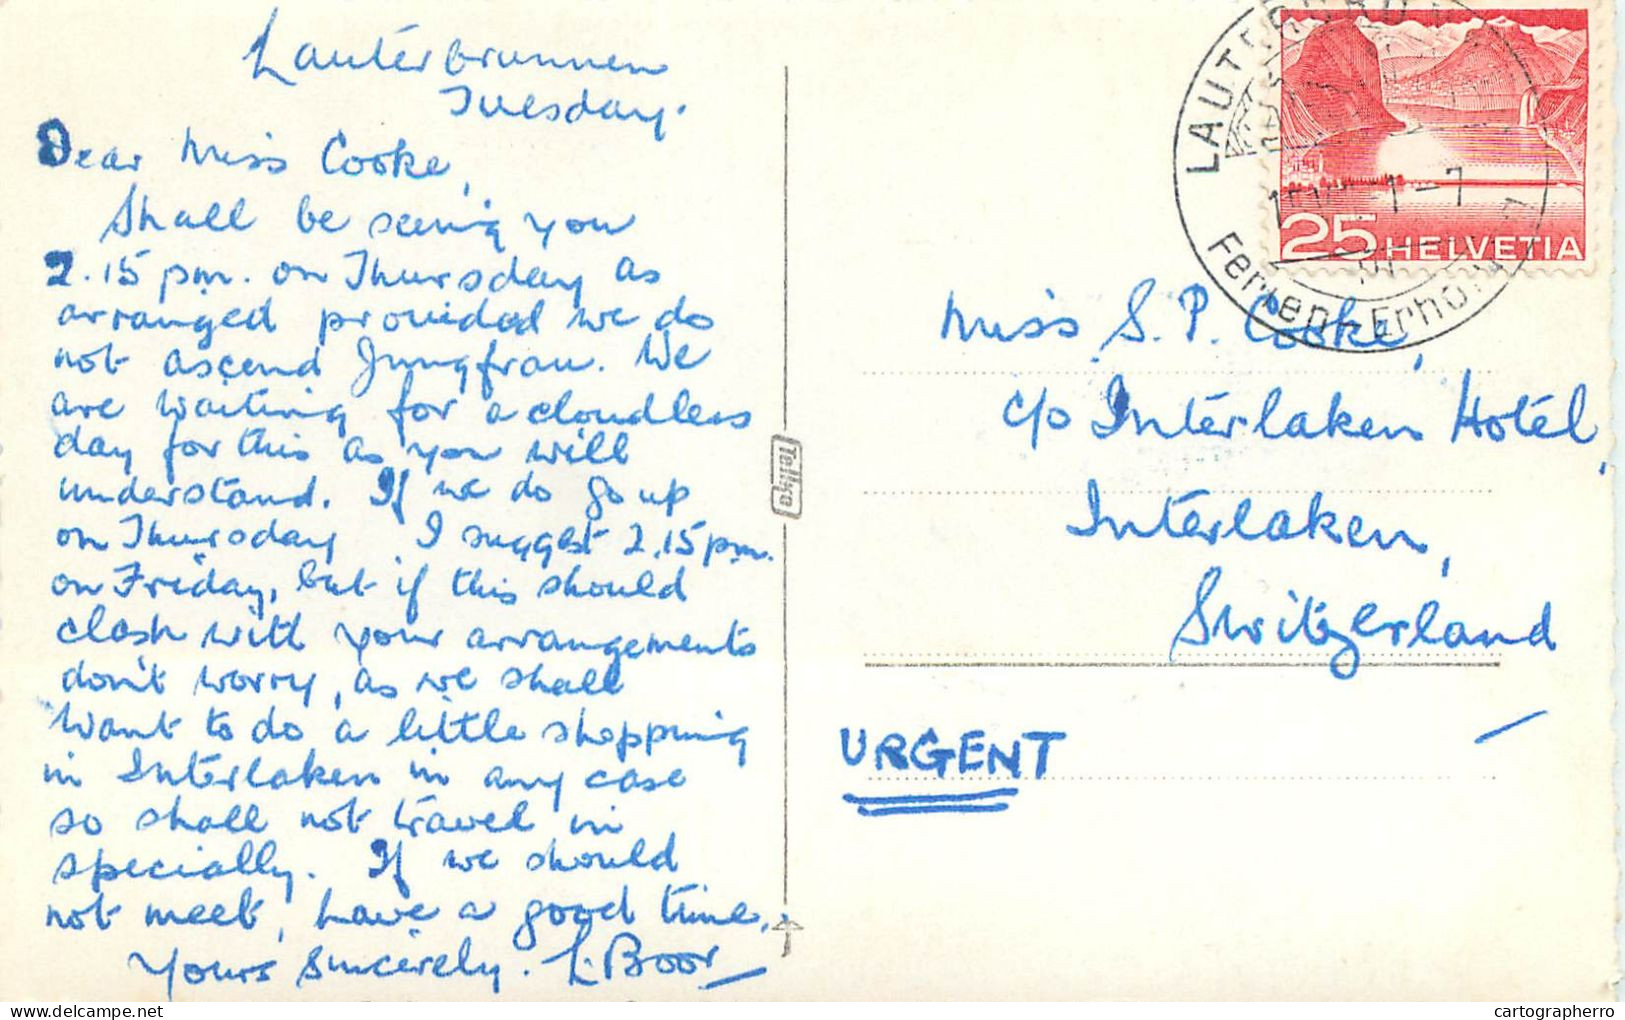 Lauterbrunnen
Tuesday.
Dear Miss Cooke,
Shall be seeing you
2.15 pm. on Thursday as
arranged provided we do
not ascend Jungfrau. We
are waiting for a cloudless
day for this as you will
understand. If we do go up
on Thursday I suggest 2.15 pm.
on Friday, but if this should
clash with your arrangements
don't worry, as we shall
want to do a little shopping
in Interlaken in any case
so shall not travel in
specially. If we should
not meet, have a good time.
Yours sincerely. L. Boor
Tellko
25 HELVETIA
Ferien-Erholung
Miss S. P. Cooke,
c/o Interlaken Hotel,
Interlaken,
Switzerland
URGENT
cartographerro